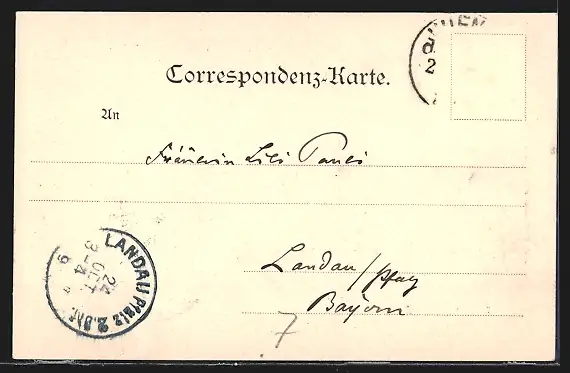 Correspondenz-Karte.
An
Fräulein Lili Pauli
Landau/Pfalz
Bayern
7
LANDAU Pfalz 2. Bhf.
24 OCT.
3-4
9
2